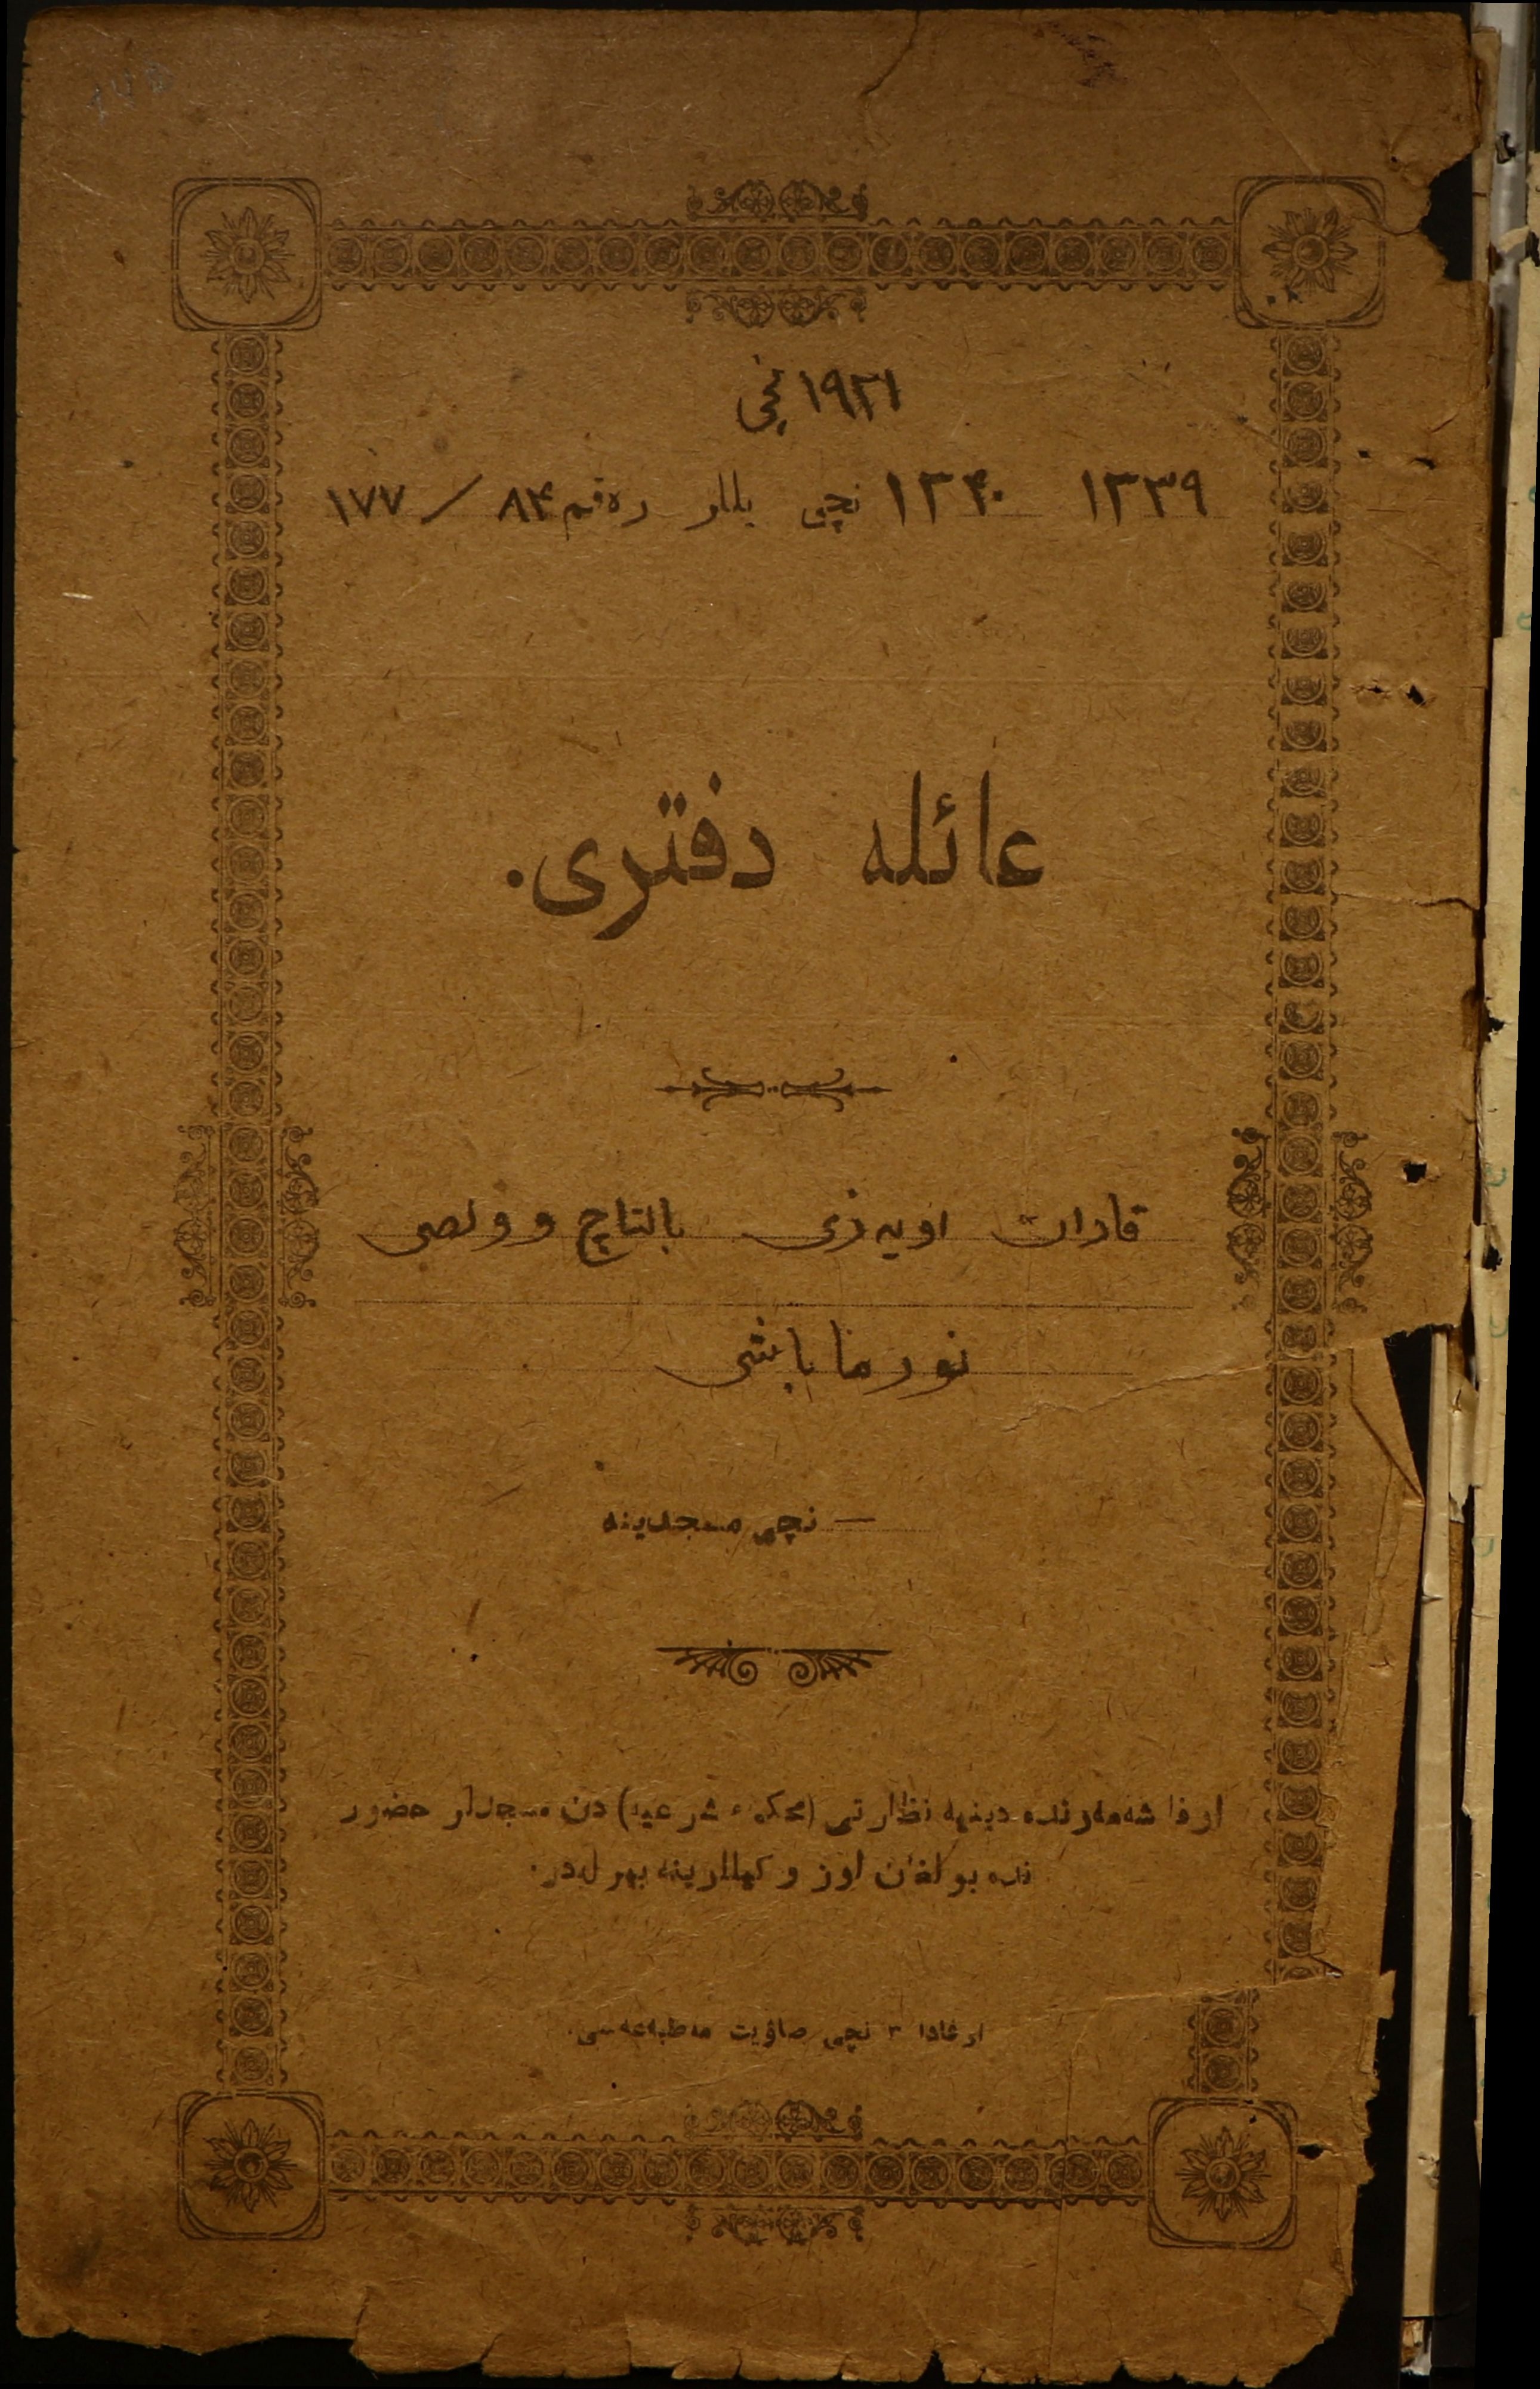 ١٩٢١ نچی
١٣٣٩ ١٣٤٠ نچی یللر رەقم ٨٤ / ١٧٧
عائله دفتری.
قادان اویەزی بالتاچ وولصی
نورما باشی
— نچی مسجدینه
اوفا شەهەرندە دینیه نظارتی (محکمهٔ شرعیه) دن مسجدلر حضور
ندە بولغان اوز وکیللرینه بیرلەدر.
اوفادا ٣ نچی صاۋیت مەطبەعەسی.